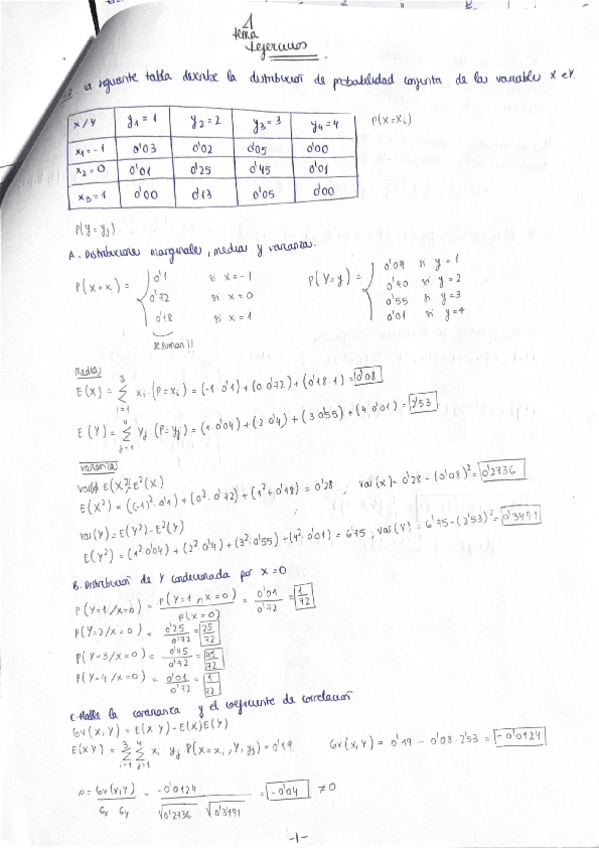 1
tema
ejercicios
la siguiente tabla describe la distribución de probabilidad conjunta de las variables X e Y.
x/y y₁=1 y₂=2 y₃=3 y₄=4 P(X=xᵢ)
x₁=-1 0'03 0'02 0'05 0'00
x₂=0 0'01 0'25 0'45 0'01
x₃=1 0'00 0'13 0'05 0'00
P(Y=yⱼ)
A. Distribuciones marginales, medias y varianza.
P(X=x) = { 0'1 si x=-1 P(Y=y) = { 0'04 si y=1
0'72 si x=0 0'40 si y=2
0'18 si x=1 0'55 si y=3
0'01 si y=4
suman 1!
Medias
E(X) = Σ³ᵢ₌₁ xᵢ·(P=xᵢ) = (-1·0'1)+(0·0'72)+(0'18·1) = 0'08
E(Y) = Σ⁴ⱼ₌₁ yⱼ·(P=yⱼ) = (1·0'04)+(2·0'4)+(3·0'55)+(4·0'01) = 2'53
varianza
var(X) E(X²)-E²(X)
E(X²) = ((-1)²·0'1)+(0²·0'72)+(1²+0'18) = 0'28 ; var(X) = 0'28-(0'08)² = 0'2736
var(Y) = E(Y²)-E²(Y)
E(Y²) = (1²·0'04)+(2²·0'4)+(3²·0'55)+(4²·0'01) = 6'75 ; var(Y) = 6'75-(2'53)² = 0'3491
B. Distribución de Y condicionada por X=0
P(Y=1/X=0) = P(Y=1∩X=0)/P(X=0) = 0'01/0'72 = 1/72
P(Y=2/X=0) = 0'25/0'72 = 25/72
P(Y=3/X=0) = 0'45/0'72 = 45/72
P(Y=4/X=0) = 0'01/0'72 = 1/72
C. Halle la covarianza y el coeficiente de correlación
Cov(X,Y) = E(X·Y)-E(X)E(Y)
E(XY) = Σ³ᵢ₌₁ Σ⁴ⱼ₌₁ xᵢ yⱼ P(X=xᵢ,Y,yⱼ) = 0'19. Cov(X,Y) = 0'19-0'08·2'53 = -0'0124
ρ = Cov(X,Y)/σx σy = -0'0124/√0'2736 √0'3491 = -0'04 ≠0
-1-